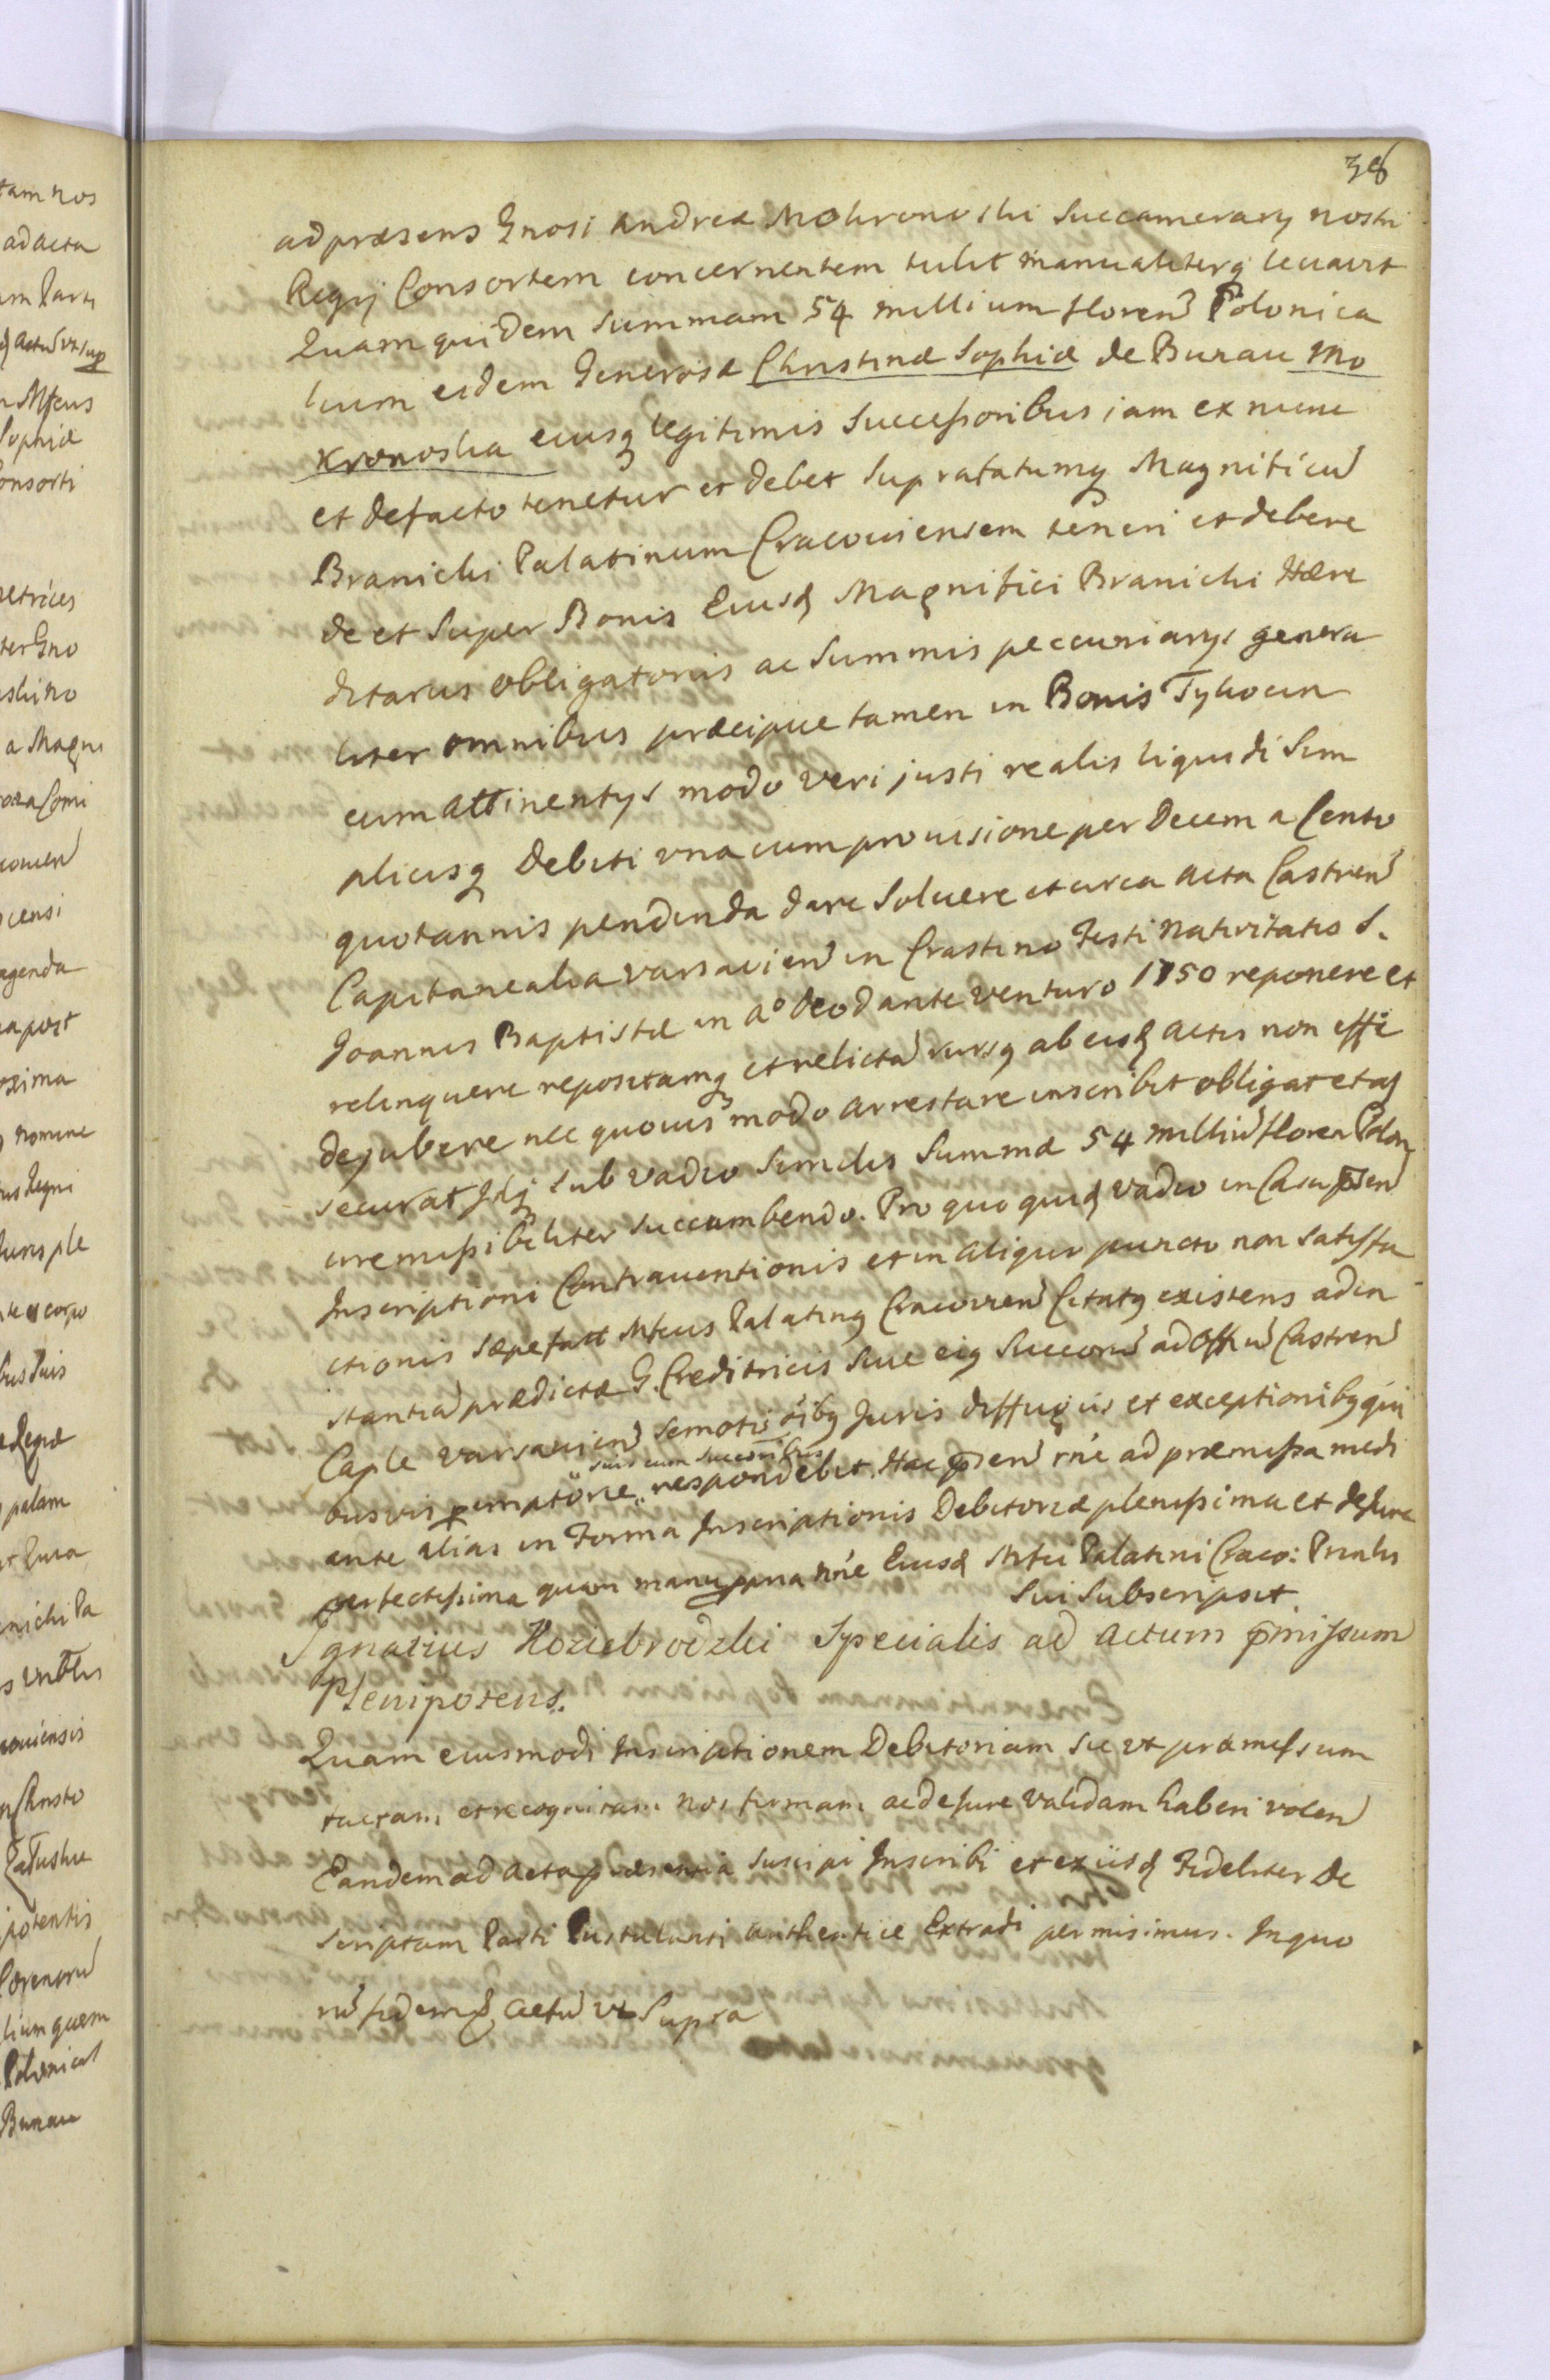 38
ad præsens Gnosi Andreæ Mokronoski Succamerarij nostri
Regij Consortem concernentem tulit manualiterq levavit
Quam quidem Summam 54 millium floren Polonica
lium eidem Generosæ Christinæ Sophiæ de Bunau Mo
kronoska eiusq legitimis Successoribus iam ex nunc
et defacto tenetur et debet Supratatumq Magnificū
Branicki Palatinum Cracoviensem teneri et debere
de et Super Bonis Eiusd Magnifici Branicki Hære
ditarus obligatoriis ac Summis peccuniarys genera
liter omnibus præcipue tamen in Bonis Tykocin
cum attinentys modo veri justi realis liquidi Sim
plicisq Debiti vna cum provisione per Decem a Cento
quotannis pendenda dare Soluere et circa acta Castren
Capitanealia Varsavien in Crastino Festi Nativitatis S.
Joannis Baptistæ in Ao Deo dante venturo 1750 reponere et
relinquere repositamq et relictā rursq ab eisd actis non effi
dejubere nec quovis modo arrestare inscribit obligat et as
securat Idq sub vadio Similis Summæ 54 milliū floren Polon
irremissibiliter succumbendo. Pro quo quid vadio in Casu psen
Inscriptioni Contraventionis et in aliquo puncto non Satisfa
ctionis Sæpefatt Mfcus Palatinq Cracovien Citatq existens ad in
stantiā prædictæ G. Creditricis Sive eiq Succorū ad Offū Castren
Caple Varsavien Semotis oibq Juris diffugiis et exceptionibq qui
suis cum Succoribus
busvis pemptorie respondebit. Hac psen rñe ad præmissa medi
ante alias in Forma Inscriptionis Debitoriæ plenissima et de Jure
perfectissima quam manu ppria nñe Eiusd Mfci Palatini Craco: Prinlis
Sui Subscripsit.
Ignatius Kociebrodzki Specialis ad actum pmissum
Plenipotens.
Quam eiusmodi Inscriptionem Debitoriam Sic vt præmissum
factam et recognitam nos firmam ac de Jure validam haberi volen
Eandem ad acta præsentia Suscipi Inscribi et ex iisd Fideliter De
Scriptam Parti Postulanti authentice Extradi permisimus. In quo
rū fidem Actū vt Supra